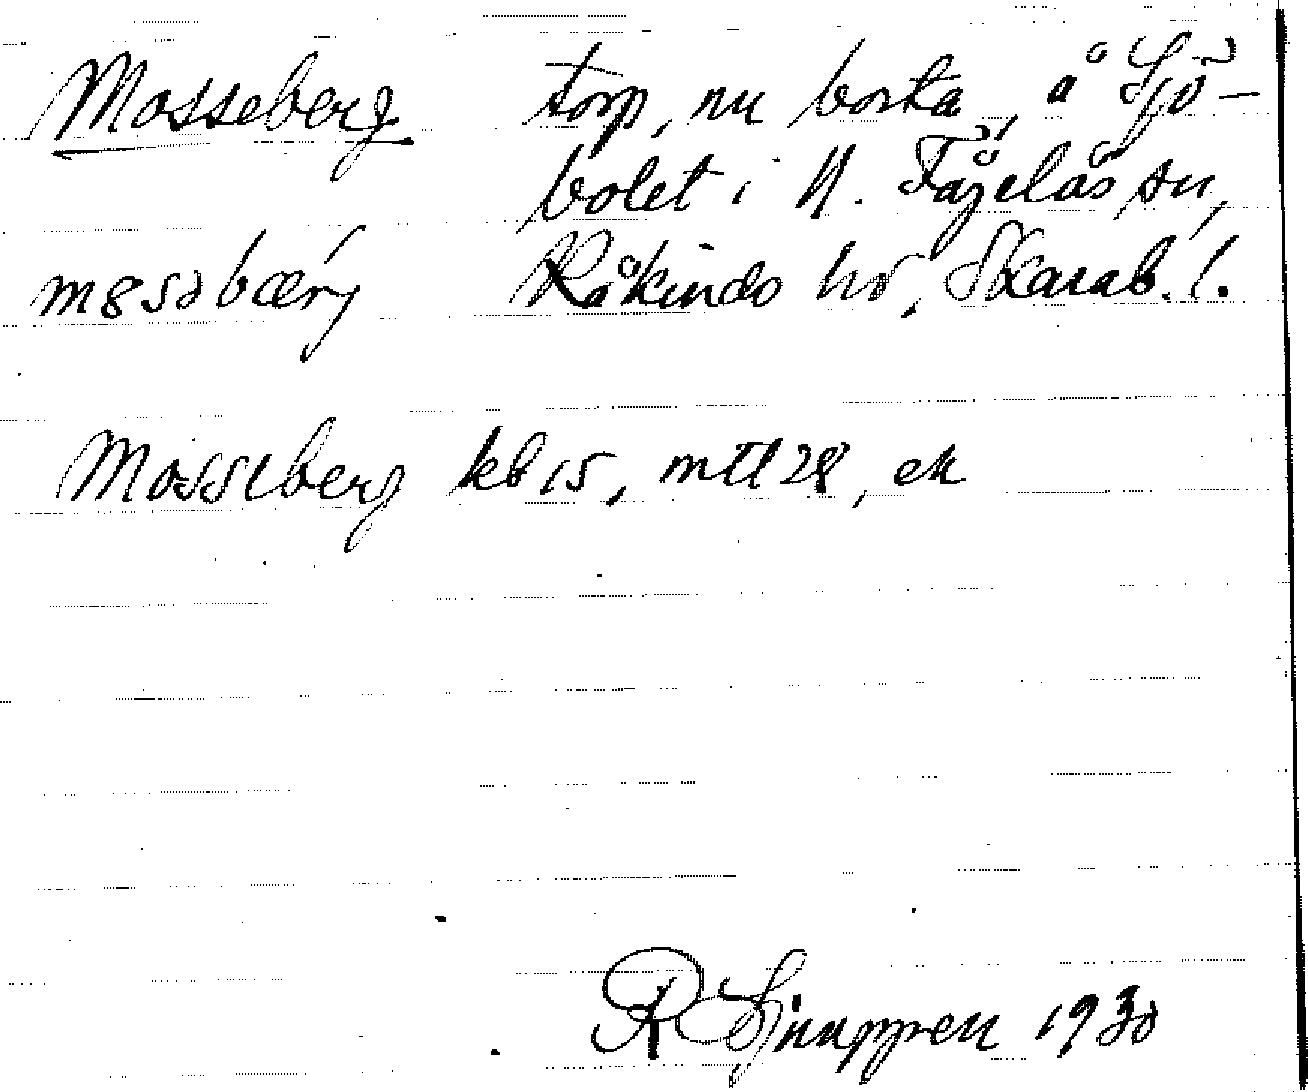 Mosseberg torp, nu borta, å Sjö-
bolet i N. Fågelås sn,
Kåkinds hd, Skarab. l.
Mosseberg kb 15, mtl 28, ek
1930